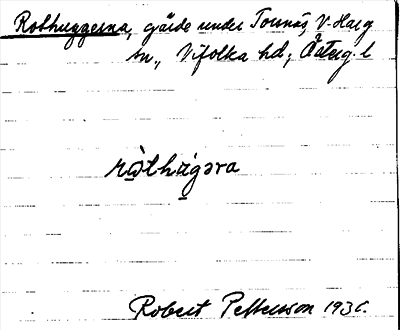 Rothuggerna, gärde under Tournäs, V. Harg
sn., Vifolka hd, Östeg. l
rὼthágəra
Robert Pettersson 193